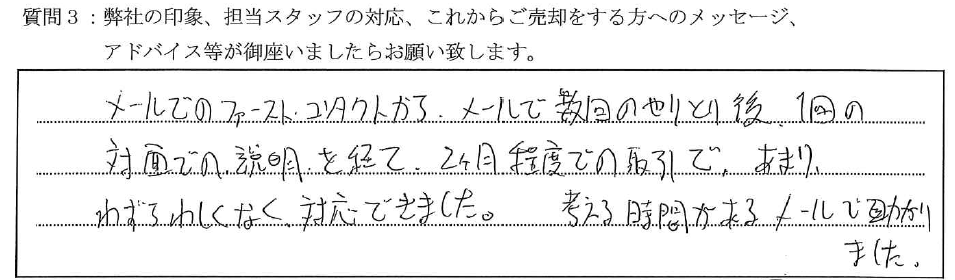 質問3：弊社の印象、担当スタッフの対応、これからご売却をする方へのメッセージ、
アドバイス等が御座いましたらお願い致します。
メールでのファーストコンタクトから、メールで数回のやりとり後、1回の
対面での説明を経て、2ヶ月程度での取引で、あまり、
わずらわしくなく、対応できました。 考える時間があるメールで助かり
ました。